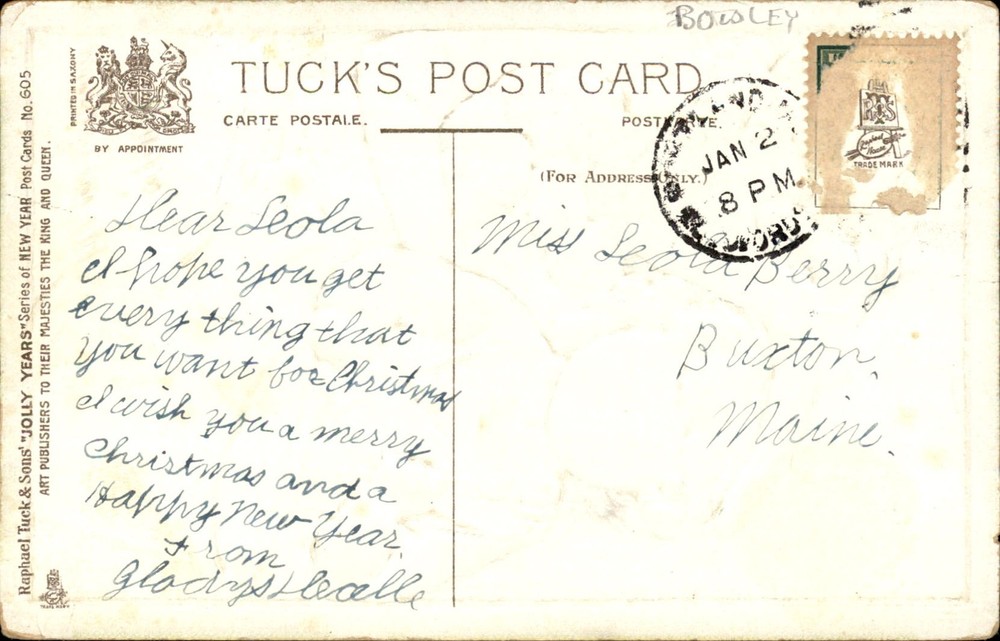 BOWSLEY
TUCK'S POST CARD
CARTE POSTALE.
BY APPOINTMENT
PRINTED IN SAXONY
(FOR ADDRESS ONLY.)
JAN 2
8 PM
TRADE MARK
Dear Leola
I hope you get
every thing that
you want for Christmas
I wish you a merry
Christmas and a
Happy New Year
From
Gladys
Miss Leola Berry
Buxton,
Maine.
Raphael Tuck & Sons' "JOLLY YEARS" Series of NEW YEAR Post Cards No. 605
ART PUBLISHERS TO THEIR MAJESTIES THE KING AND QUEEN.
TRADE MARK